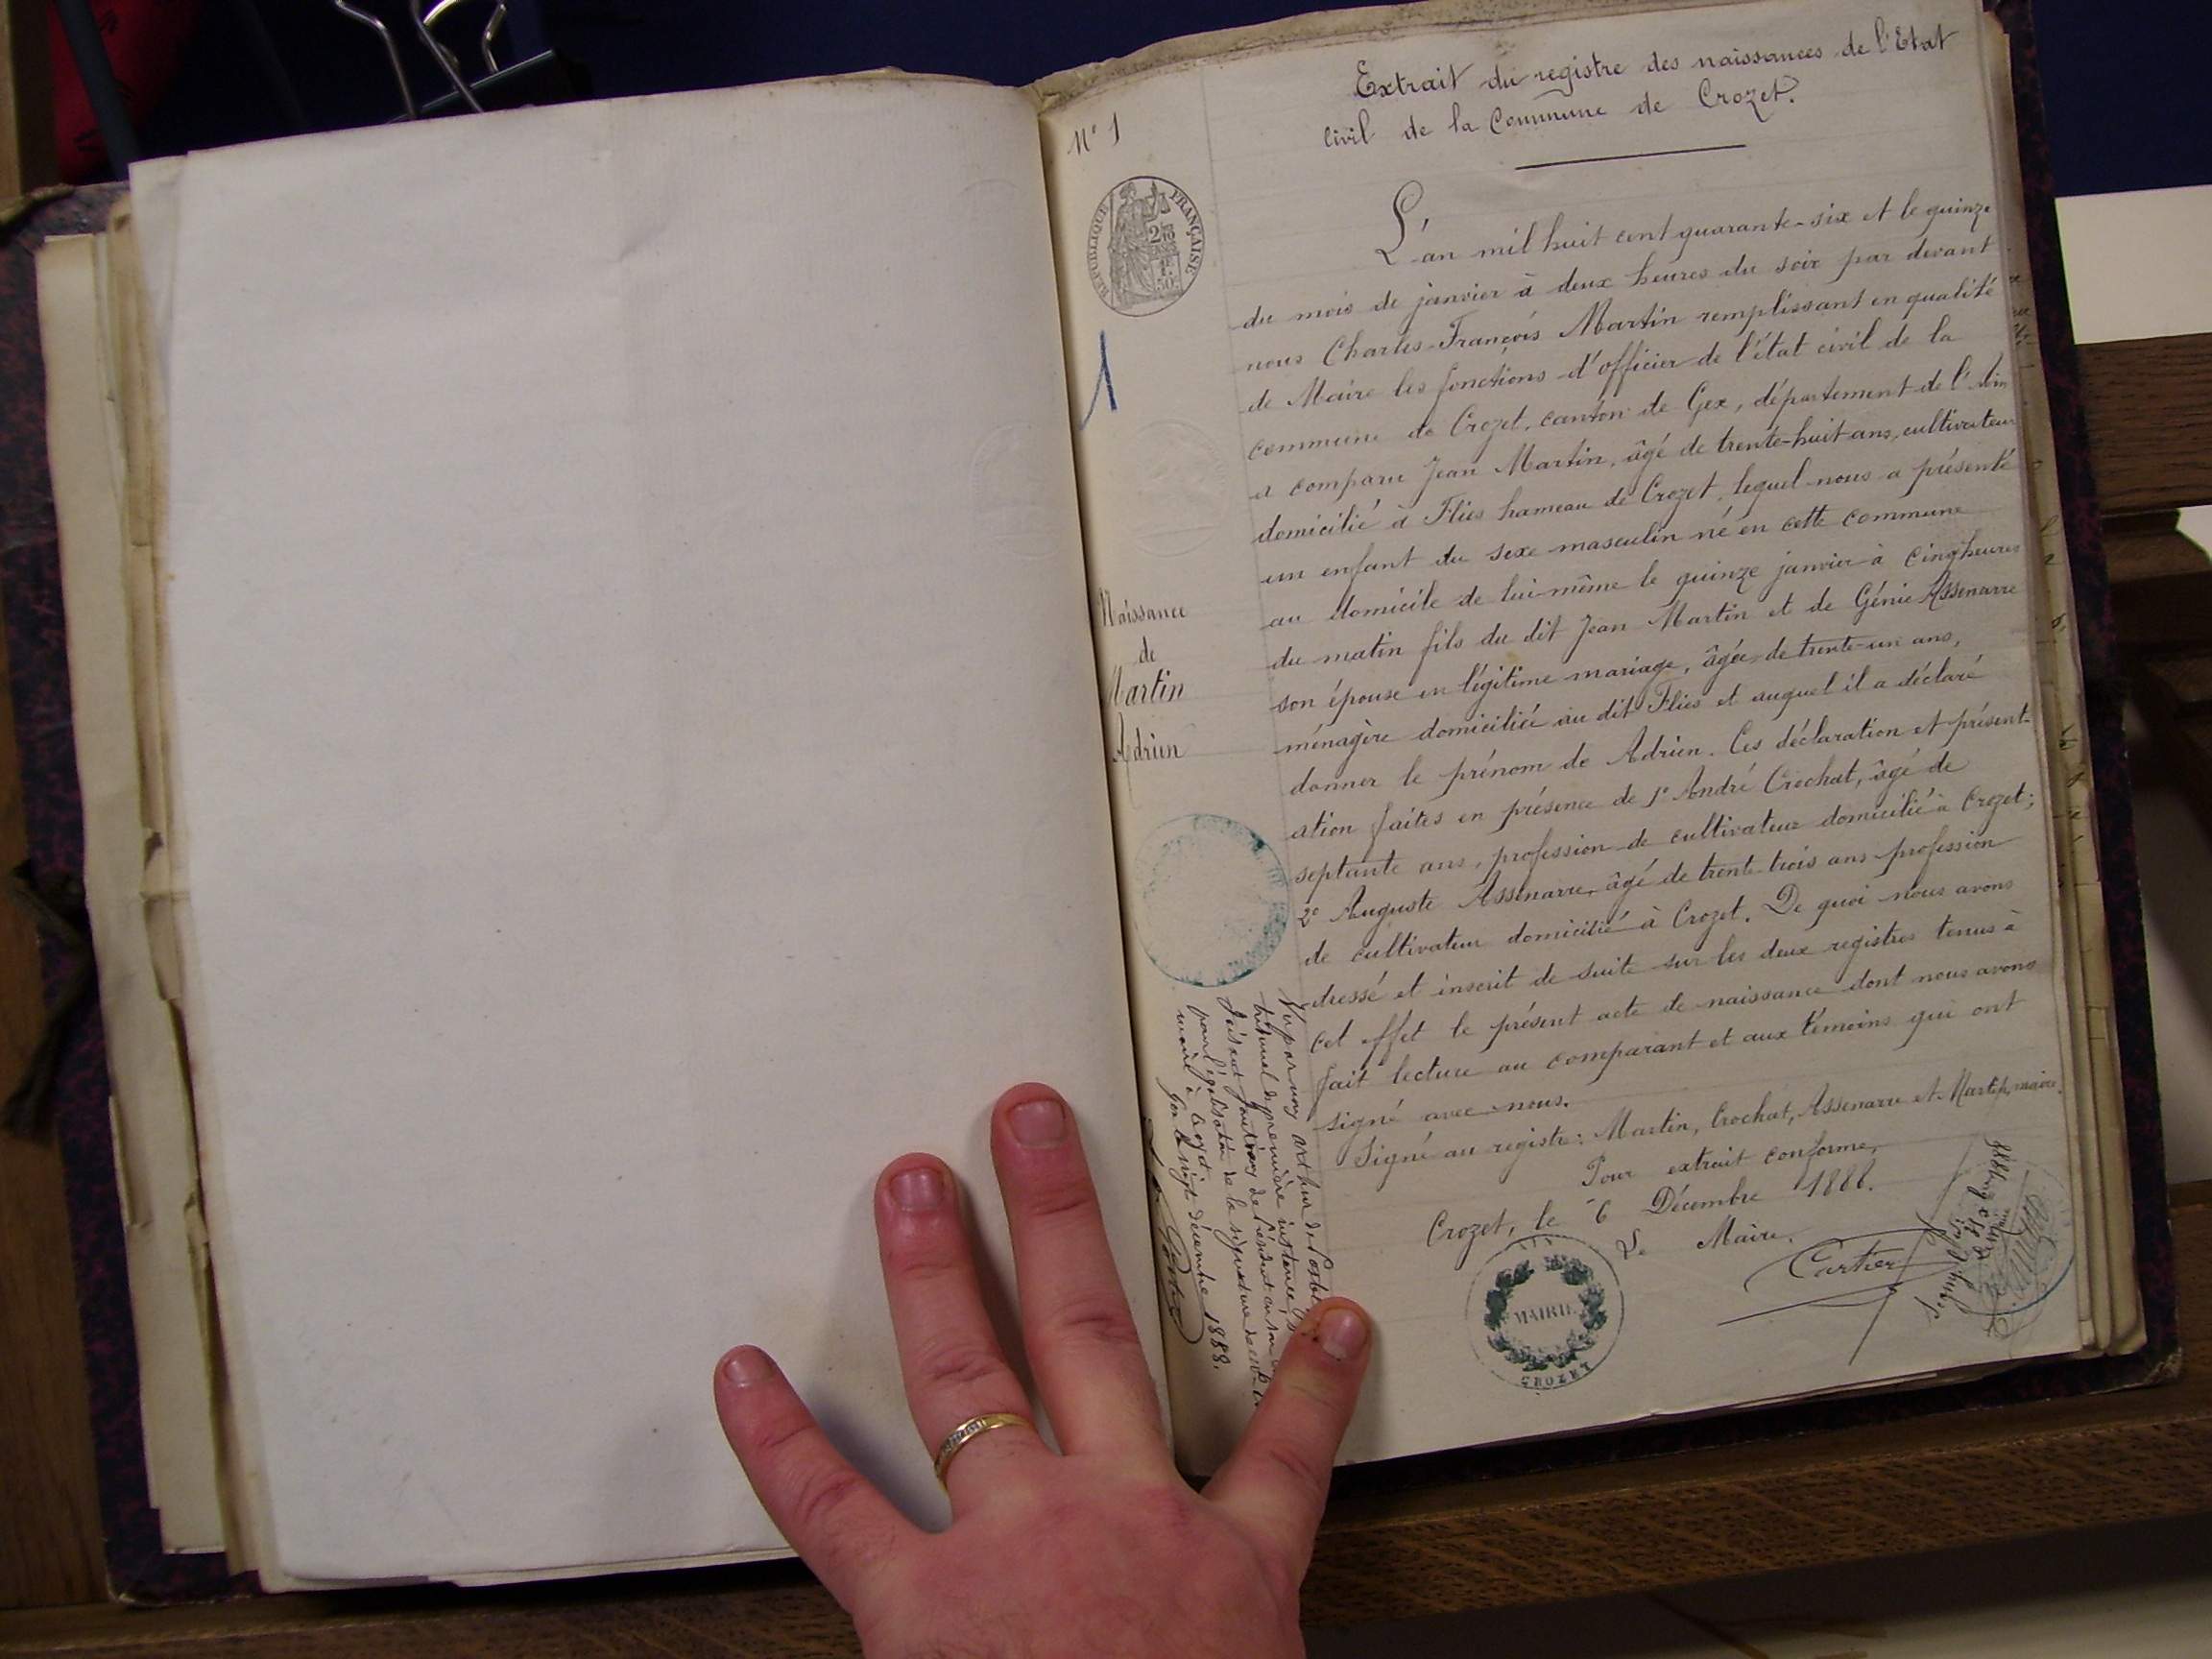 Extrait du registre des naissances de l'Etat
civil de la Commune de Crozet.
N° 1
REPUBLIQUE FRANÇAISE
1
Naissance
de
Martin
Adrien
L'an mil huit cent quarante-six et le quinze
du mois de janvier à deux heures du soir par devant
nous Charles-François Martin remplissant en qualité
de Maire les fonctions d'officier de l'état civil de la
commune de Crozet, canton de Gex, département de l'Ain
a comparu Jean Martin, âgé de trente-huit ans, cultivateur
domicilié à Flies hameau de Crozet, lequel nous a présenté
un enfant du sexe masculin né en cette commune
au domicile de lui-même le quinze janvier à cinq heures
du matin fils du dit Jean Martin et de Génie Assenarre
son épouse en légitime mariage, âgée de trente-un ans,
ménagère domiciliée au dit Flies et auquel il a déclaré
donner le prénom de Adrien. Ces déclaration et présent-
ation faites en présence de 1° André Crochat, âgé de
septante ans, profession de cultivateur domicilié à Crozet;
2° Auguste Assenarre, âgé de trente trois ans profession
de cultivateur domicilié à Crozet. De quoi nous avons
dressé et inscrit de suite sur les deux registres tenus à
cet effet le présent acte de naissance dont nous avons
fait lecture au comparant et aux témoins qui ont
signé avec nous.
Signé au registre: Martin, Crochat, Assenarre et Martin, maire.
Pour extrait conforme,
Crozet, le 6 Décembre 1888.
Le Maire,
Cartier
MAIRIE
CROZET
Vu par nous Arthur de
tribunal de première instance
Gex
pour légalisation de la signature de
maire à Crozet
Gex le vingt décembre 1888.